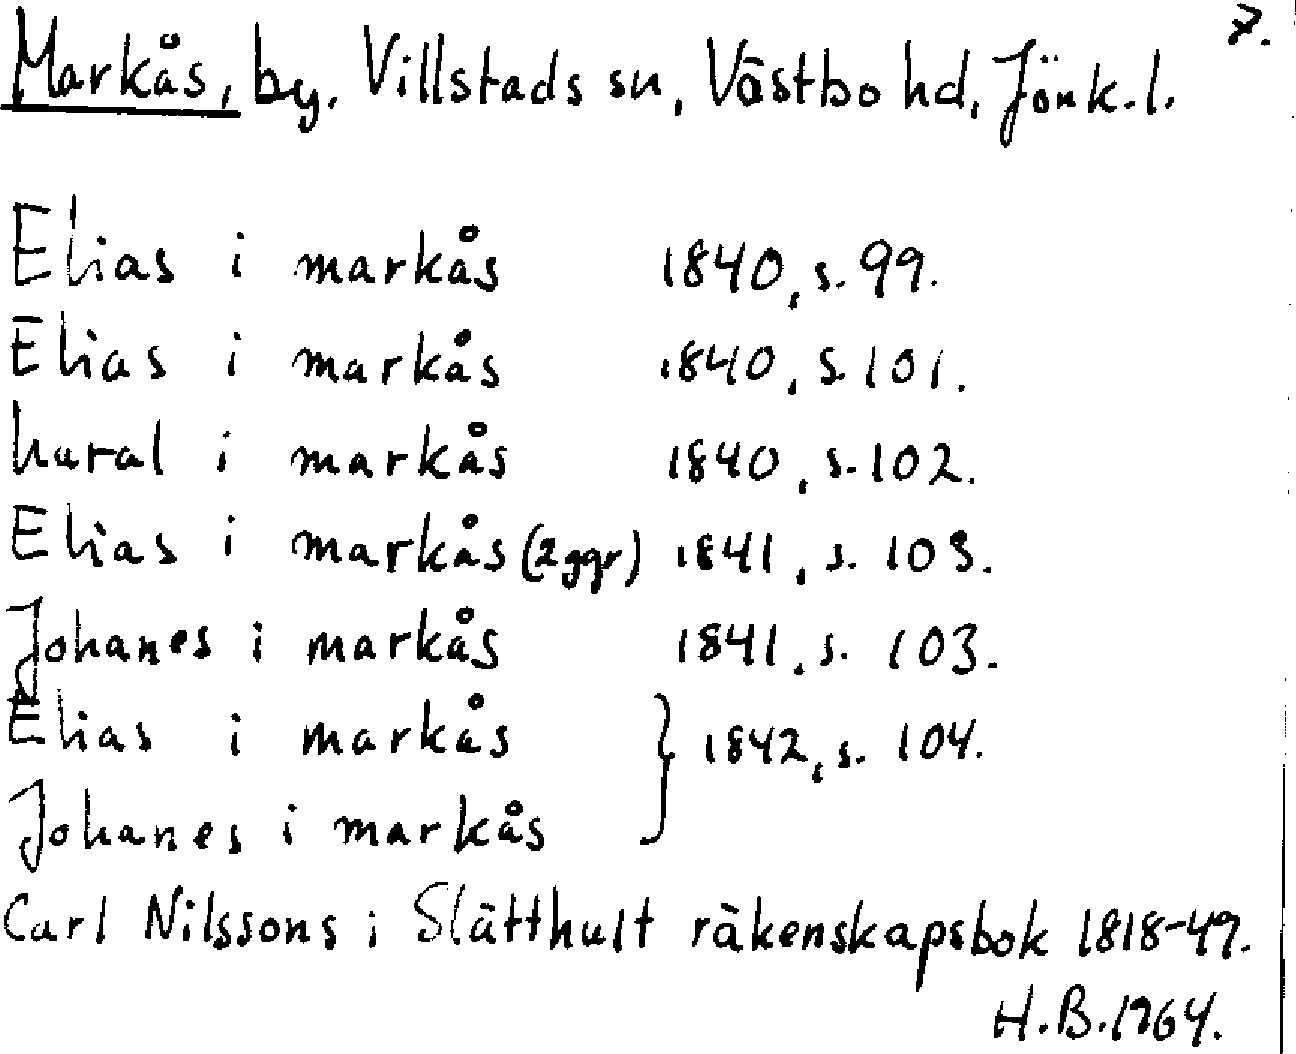 7.
Markås, by. Villstads sn, Västbo hd, Jönk.l.
Elias i markås 1840, s. 99.
Elias i markås 1840, s. 101.
hural i markås 1840, s. 102.
Elias i markås (2ggr) 1841, s. 103.
Johanes i markås 1841, s. 103.
Elias i markås } 1842, s. 104.
Johanes i markås
Carl Nilssons i Slätthult räkenskapsbok 1818-49.
H.B. 1964.